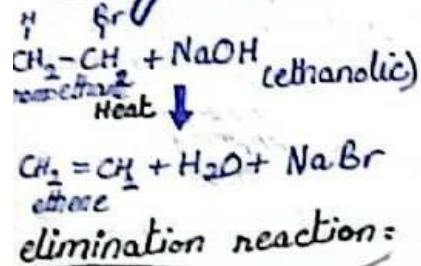 H Br
CH₂-CH₂ + NaOH (ethanolic)
Heat
CH₂ = CH₂ + H₂O + NaBr
ethene
elimination reaction: